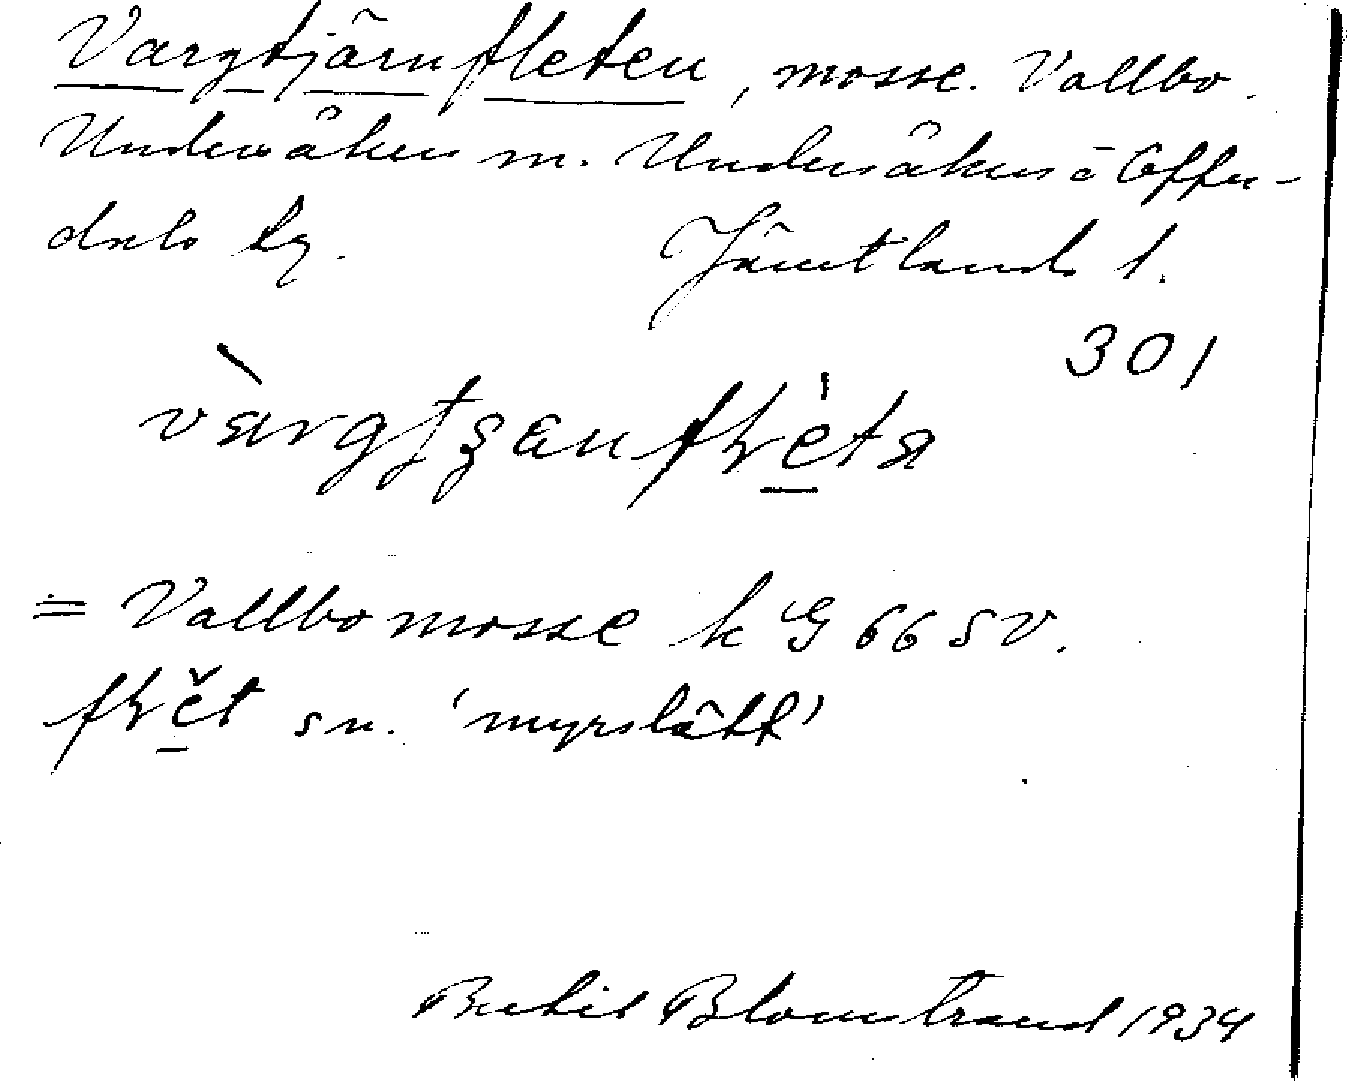 Vargtjärnfleten, mosse. Vallbo.
Undersåkers sn. Undersåkers o Offer-
dals tg. Jämtlands l.
301
= Vallbomosse k G 66 SV.
sn. 'myrslått'
Bertil Blomstrand 1934